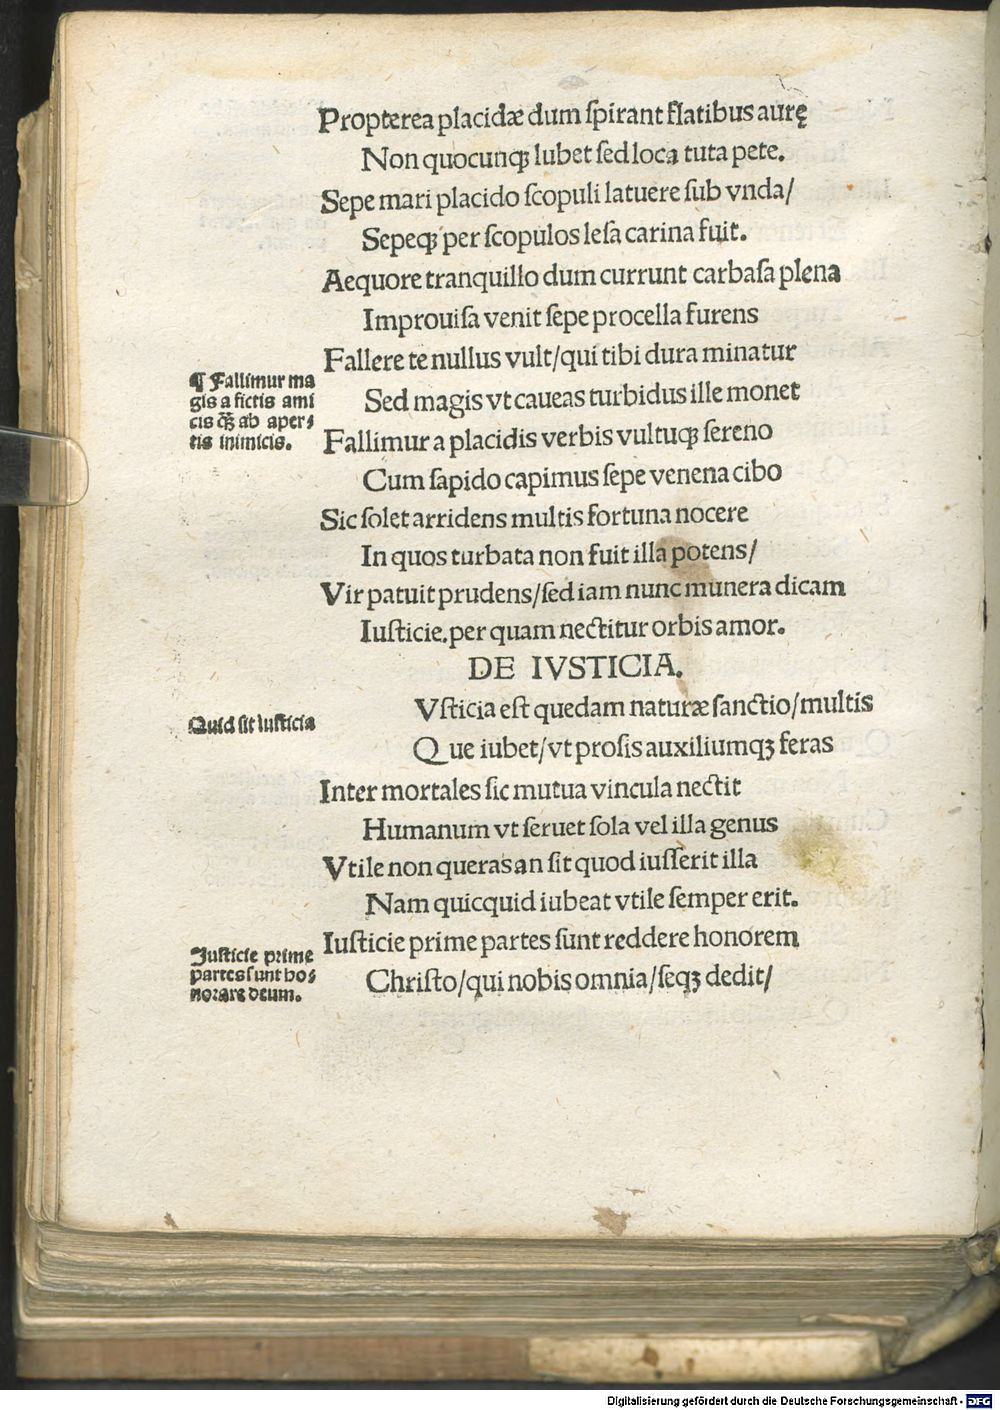 Propterea placidæ dum ſpirant flatibus aurę
Non quocunqꝫ lubet ſed loca tuta pete.
Sepe mari placido ſcopuli latuere ſub vnda/
Sepeqꝫ per ſcopulos leſa carina fuit.
Aequore tranquillo dum currunt carbaſa plena
Improuiſa venit ſepe procella furens
Fallere te nullus vult/qui tibi dura minatur
Sed magis vt caueas turbidus ille monet
¶ Fallimur ma
gis a fictis ami
cis q̃ꝫ ab aper⸗
tis inimicis.
Fallimur a placidis verbis vultuqꝫ ſereno
Cum ſapido capimus ſepe venena cibo
Sic ſolet arridens multis fortuna nocere
In quos turbata non fuit illa potens/
Vir patuit prudens/ſed iam nunc munera dicam
Iuſticie.per quam nectitur orbis amor.
DE IVSTICIA.
Quid ſit iuſticia
Vſticia eſt quedam naturæ ſanctio/multis
Que iubet/vt proſis auxiliumqꝫ feras
Inter mortales ſic mutua vincula nectit
Humanum vt ſeruet ſola vel illa genus
Vtile non queras an ſit quod iuſſerit illa
Nam quicquid iubeat vtile ſemper erit.
Iuſticie prime
partes ſunt ho⸗
norare deum.
Iuſticie prime partes ſunt reddere honorem
Chriſto/qui nobis omnia/ſeqꝫ dedit/
Digitalisierung gefördert durch die Deutsche Forschungsgemeinschaft - DFG